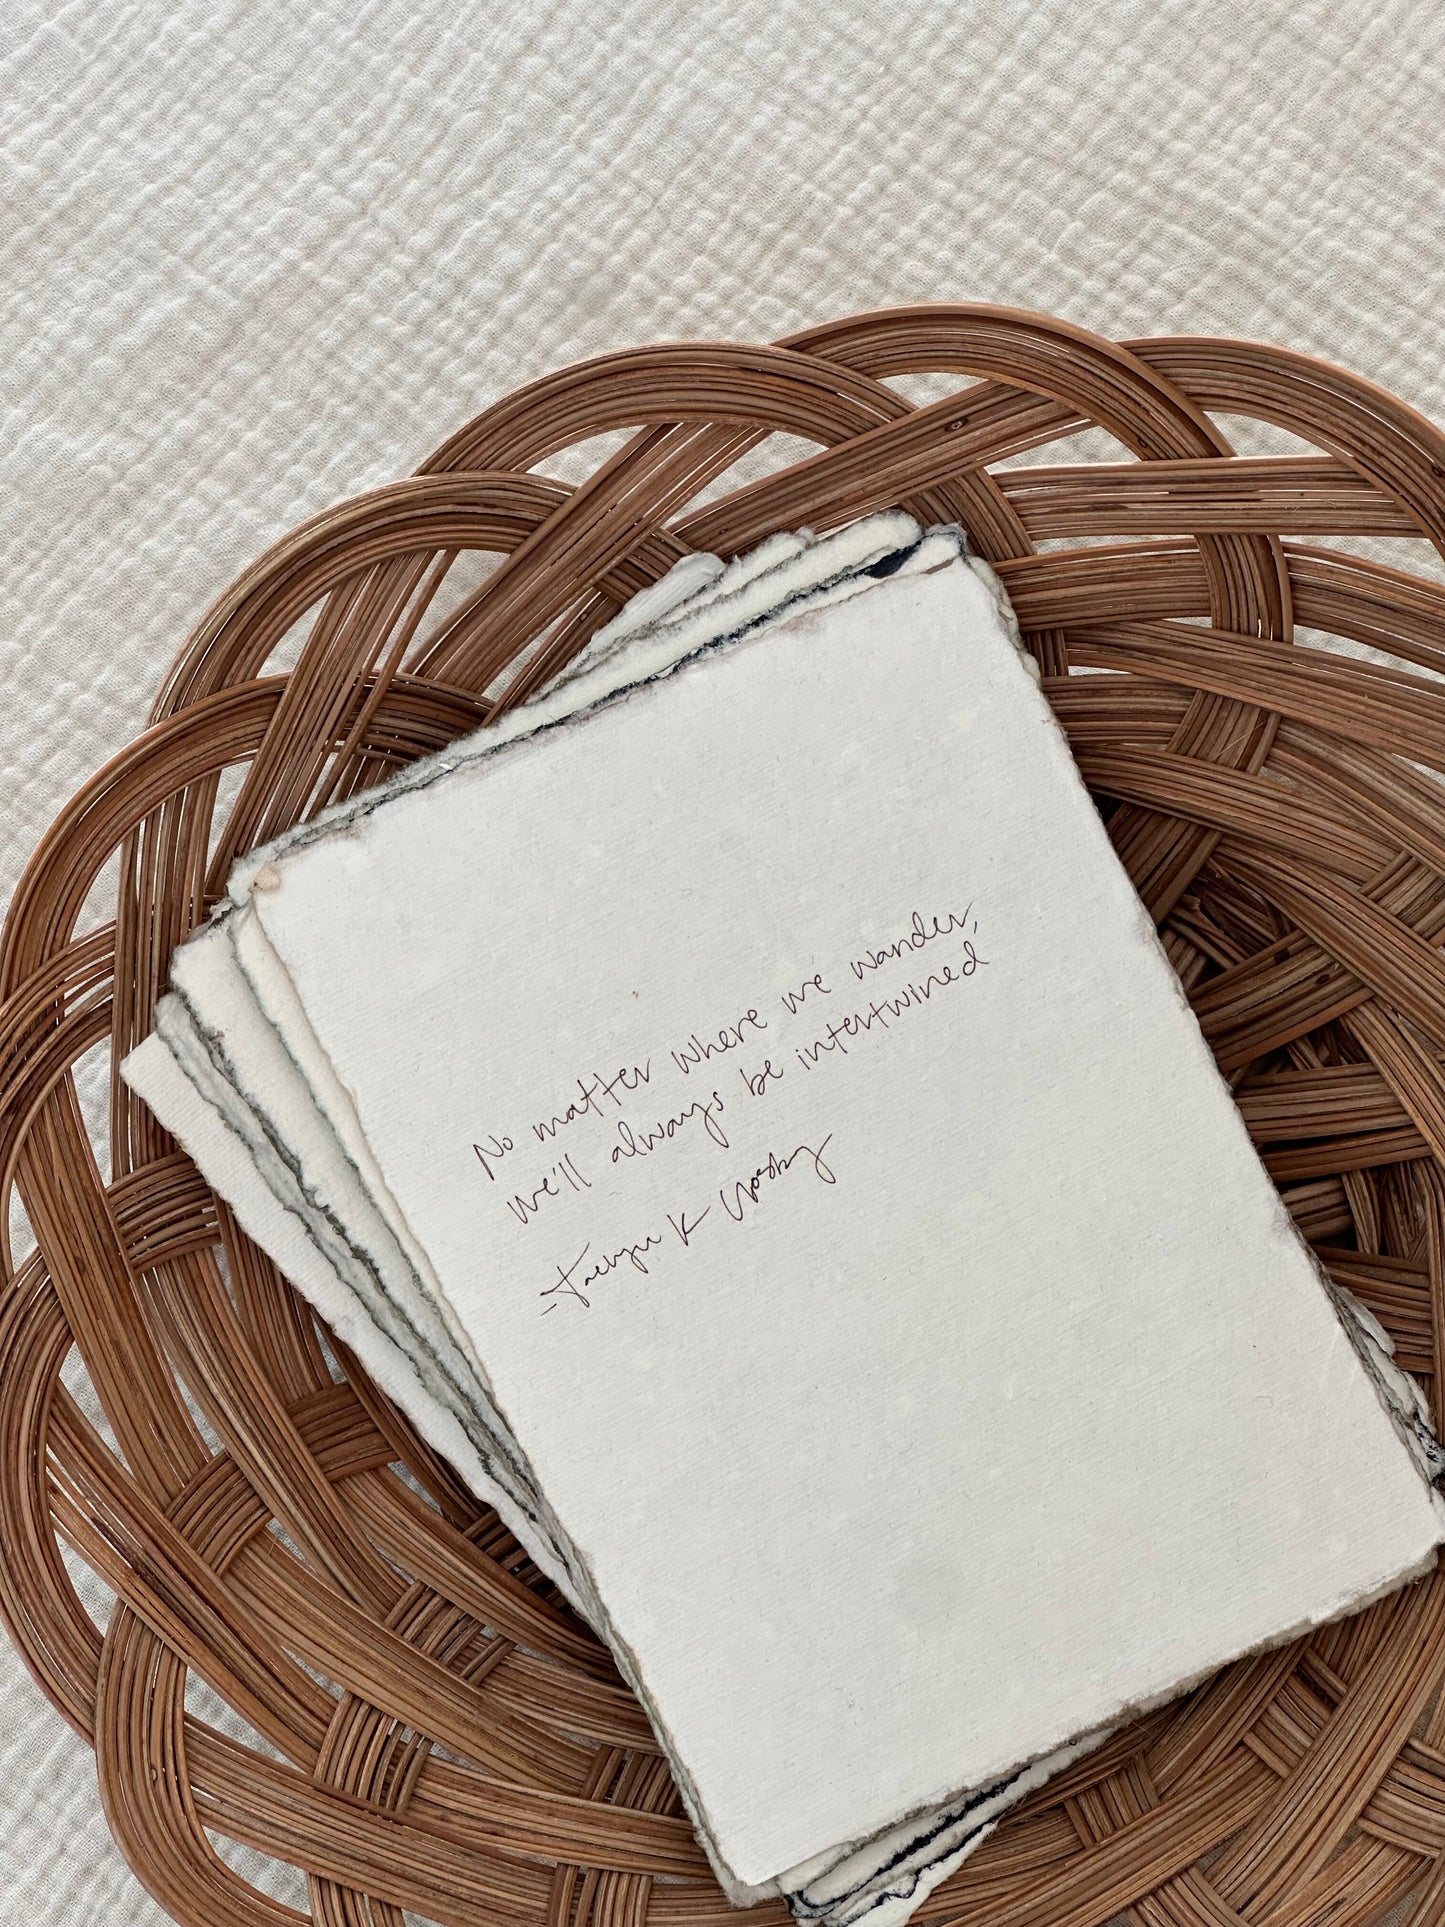 No matter where we wander,
we'll always be intertwined
- K Crosby